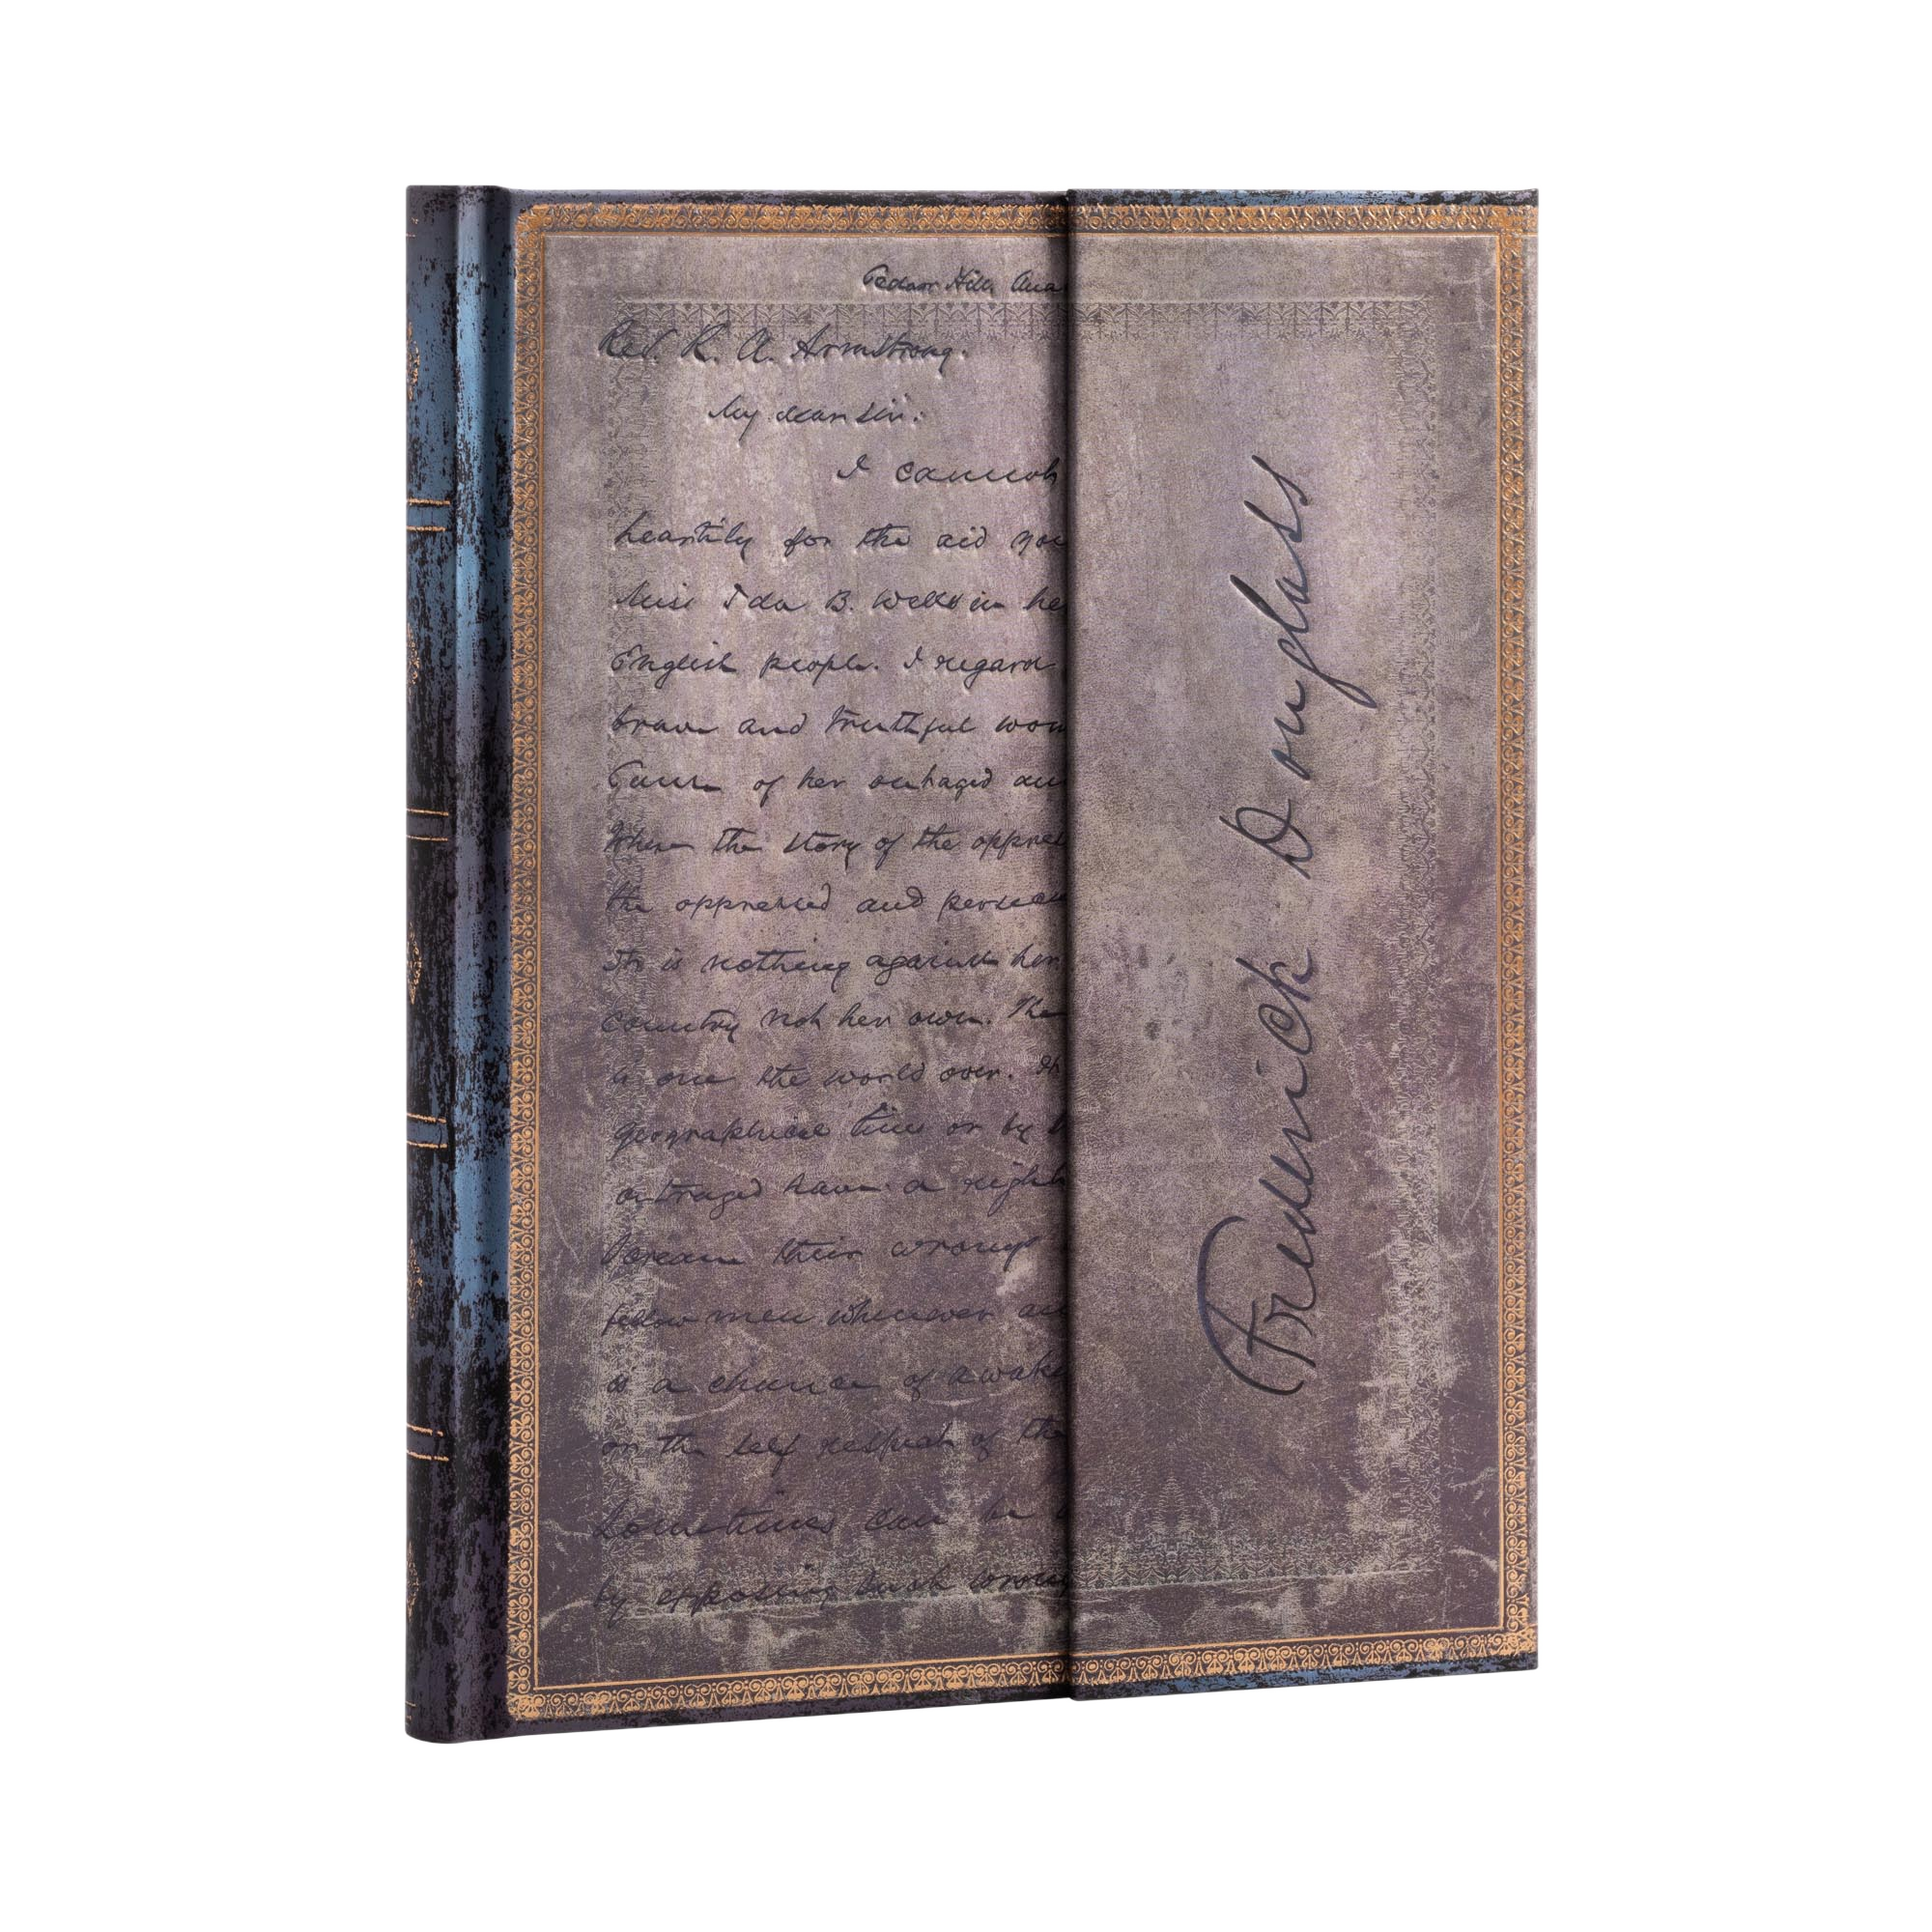 Cedar Hill, Ana
Rev. R. A. Armstrong.
My dear Sir:
I cannot
heartily for the aid you
Miss Ida B. Wells in he
English people. I regard
brave and truthful wom
Cause of her outraged an
Where the story of the oppres
the oppressed and persecu
It is nothing against her
country not her own. The
is one the world over. It
geographical lines or by
outraged have a right
their wrongs
fellow men whenever an
is a chance of awake
or the self respect of the
Sometimes can be
by opposing such wrong
Frederick Douglass